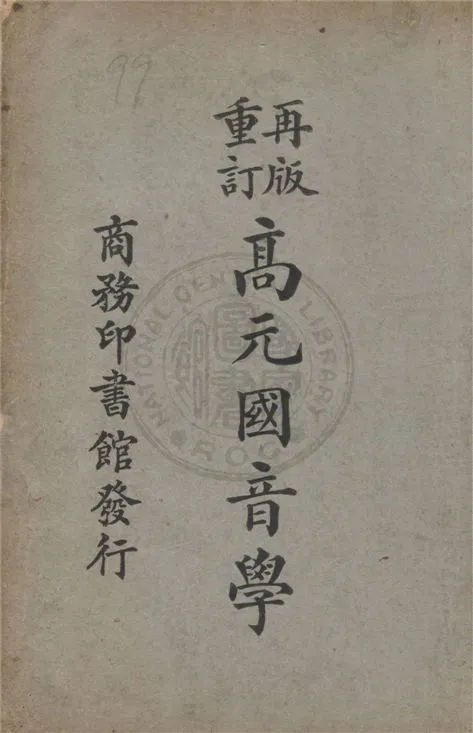 再版
重訂
高元國音學
商務印書館發行
99
NATIONAL CENTRAL LIBRARY
ROC